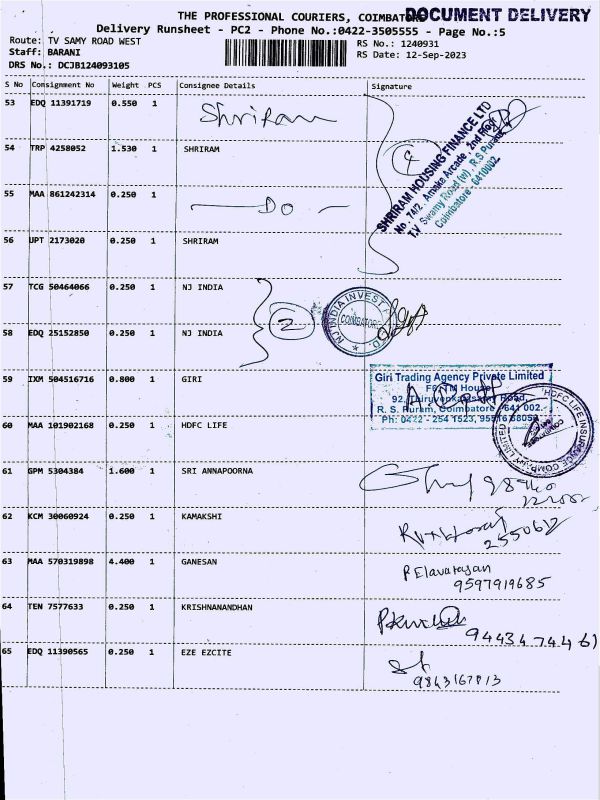 THE PROFESSIONAL COURIERS, COIMBATORE
DOCUMENT DELIVERY
Delivery Runsheet - PC2 - Phone No.:0422-3505555 - Page No.:5
Route: TV SAMY ROAD WEST
RS No.: 1240931
Staff: BARANI
RS Date: 12-Sep-2023
DRS No.: DCJB124093105
S No Consignment No Weight PCS Consignee Details Signature
53 EDQ 11391719 0.550 1 Shriram
54 TRP 4258052 1.530 1 SHRIRAM
4
SHRIRAM HOUSING FINANCE LTD
No. 74/2, Amake Arcade, 2nd Floor
T.V Swamy Road (w), R.S Puram,
Coimbatore - 641002
55 MAA 861242314 0.250 1 — Do —
56 UPT 2173020 0.250 1 SHRIRAM
57 TCG 50464066 0.250 1 NJ INDIA
2
NJ INDIA INVEST
COIMBATORE
58 EDQ 25152850 0.250 1 NJ INDIA
59 IXM 504516716 0.800 1 GIRI
Giri Trading Agency Private Limited
F6, TM House
92, Thiruvenkatasamy Road,
R. S. Puram, Coimbatore - 641 002.
Ph: 0422 - 254 1523,
60 MAA 101902168 0.250 1 HDFC LIFE
HDFC LIFE INSURANCE COMPANY LIMITED
61 GPM 5304384 1.600 1 SRI ANNAPOORNA
62 KCM 30060924 0.250 1 KAMAKSHI
2550612
63 MAA 570319898 4.400 1 GANESAN
P Elavarasan
9597919685
64 TEN 7577633 0.250 1 KRISHNANANDHAN
9443474461
65 EDQ 11390565 0.250 1 EZE EZCITE
9843167813